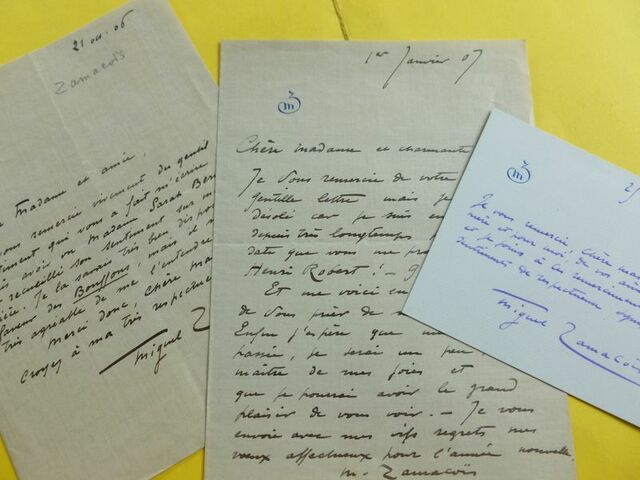 21 oct. 06
Zamacoïs
Madame et amie,
vous remercie vivement du gentil
qui vous a fait m'écrire
avoir vu Madame Sarah Ber
recueilli son sentiment sur m
Je la savais très bien disp
faveur des Bouffons, mais il m
très agréable de me l'entendre
Merci donc, chère Ma
croyez à ma très respectue
Miguel Za
1er Janvier 07
Chère madame et charmante
Je vous remercie de votre
gentille lettre mais je
désolé car je suis en
depuis très longtemps
date que vous me pro
Henri Robert! –
Et me voici en
de vous prier de m
Enfin j'espère que
passée, je serai un peu
maître de mes joies et
que je pourrai avoir le grand
plaisir de vous voir. – Je vous
envoie avec mes vifs regrets mes
vœux affectueux pour l'année nouvelle
M. Zamacoïs
Je vous remercie, chère
de vos
et je joins à les remerciements
respectueux
Miguel Zamacoïs